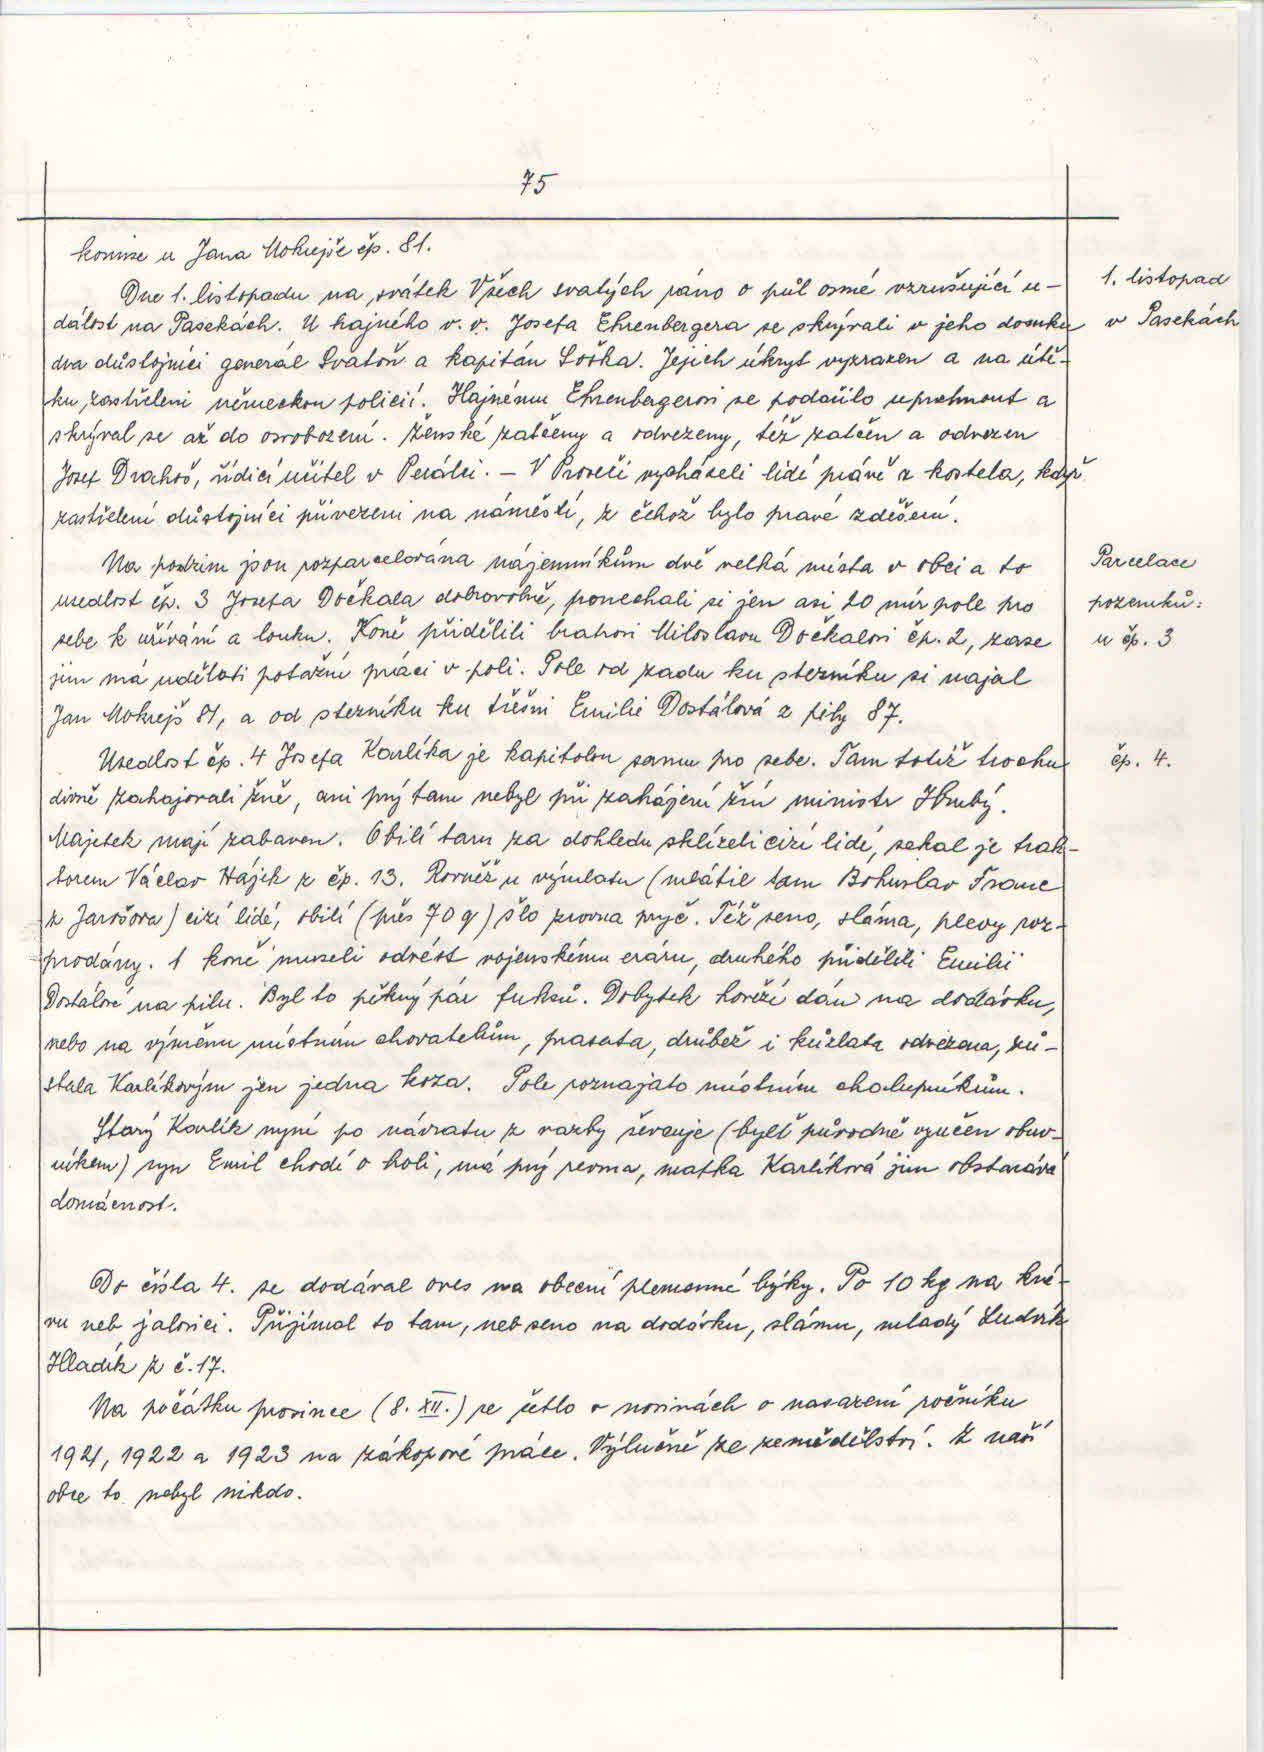 75
komise u Jana Mokrejše čp. 81.
Dne 1. listopadu na svátek Všech svatých ráno o půl osmé vzrušující u-
1. listopad
dálost na Pasekách. U hajného v. v. Josefa Ehrenbergera se skrývali v jeho domku
v Pasekách
dva důstojníci generál Svatoň a kapitán Soška. Jejich úkryt vyzrazen a na útě-
ku zastřeleni německou policií. Hajnému Ehrenbergerovi se podařilo uprchnout a
skrýval se až do osvobození. Ženské zatčeny a odvezeny, též zatčen a odvezen
Josef Drahoš, řídící učitel v Perálci. – V Proseči vycházeli lidé právě z kostela, když
zastřelení důstojníci přivezeni na náměstí, z čehož bylo pravé zděšení.
Na podzim jsou rozparcelována nájemníkům dvě velká místa v obci a to
Parcelace
usedlost čp. 3 Josefa Dočkala dobrovolně, ponechali si jen asi 20 mír pole pro
pozemků:
sebe k užívání a louku. Koně přidělili bratrovi Miloslavu Dočkalovi čp. 2, zase
u čp. 3
jim má udělati potažní práci v poli. Pole od zadu ku sterníku si najal
Jan Mokrejš 81, a od sterníku ku třešni Emilie Dostálová z pily 87.
Usedlost čp. 4 Josefa Karlíka je kapitolou samu pro sebe. Tam totiž trochu
čp. 4.
divně zahajovali žně, ani prý tam nebyl při zahájení žní ministr Hrubý.
Majetek mají zabaven. Obilí tam za dohledu sklízeli cizí lidé, sekal je trak-
torem Václav Hájek z čp. 13. Rovněž u výmlatu (mlátil tam Bohuslav Franc
z Jarošova) cizí lidé, obilí (přes 70 q) šlo zrovna pryč. Též seno, sláma, plevy roz-
prodány. 1 koně museli odvést vojenskému eráru, druhého přidělili Emilii
Dostálové na pilu. Byl to pěkný pár fuksů. Dobytek hovězí dán na dodávku,
nebo na výměnu místním chovatelům, prasata, drůbež i kůzlata odvezena, zů-
stala Karlíkovým jen jedna koza. Pole roznajato místním chalupníkům.
Starý Karlík nyní po návratu z vazby ševcuje (bylť původně vyučen obuv-
níkem) syn Emil chodí o holi, má prý revma, matka Karlíková jim obstarává
domácnost.
Do čísla 4. se dodával oves na obecní plemenné býky. Po 10 kg na krá-
vu neb jalovici. Přijímal to tam, neb seno na dodávku, slámu, mladý Ludvík
Hladík z č. 17.
Na počátku prosince (8. XII.) se četlo v novinách o nasazení ročníku
1921, 1922 a 1923 na zákopové práce. Výlučně ze zemědělství. Z naší
obce to nebyl nikdo.